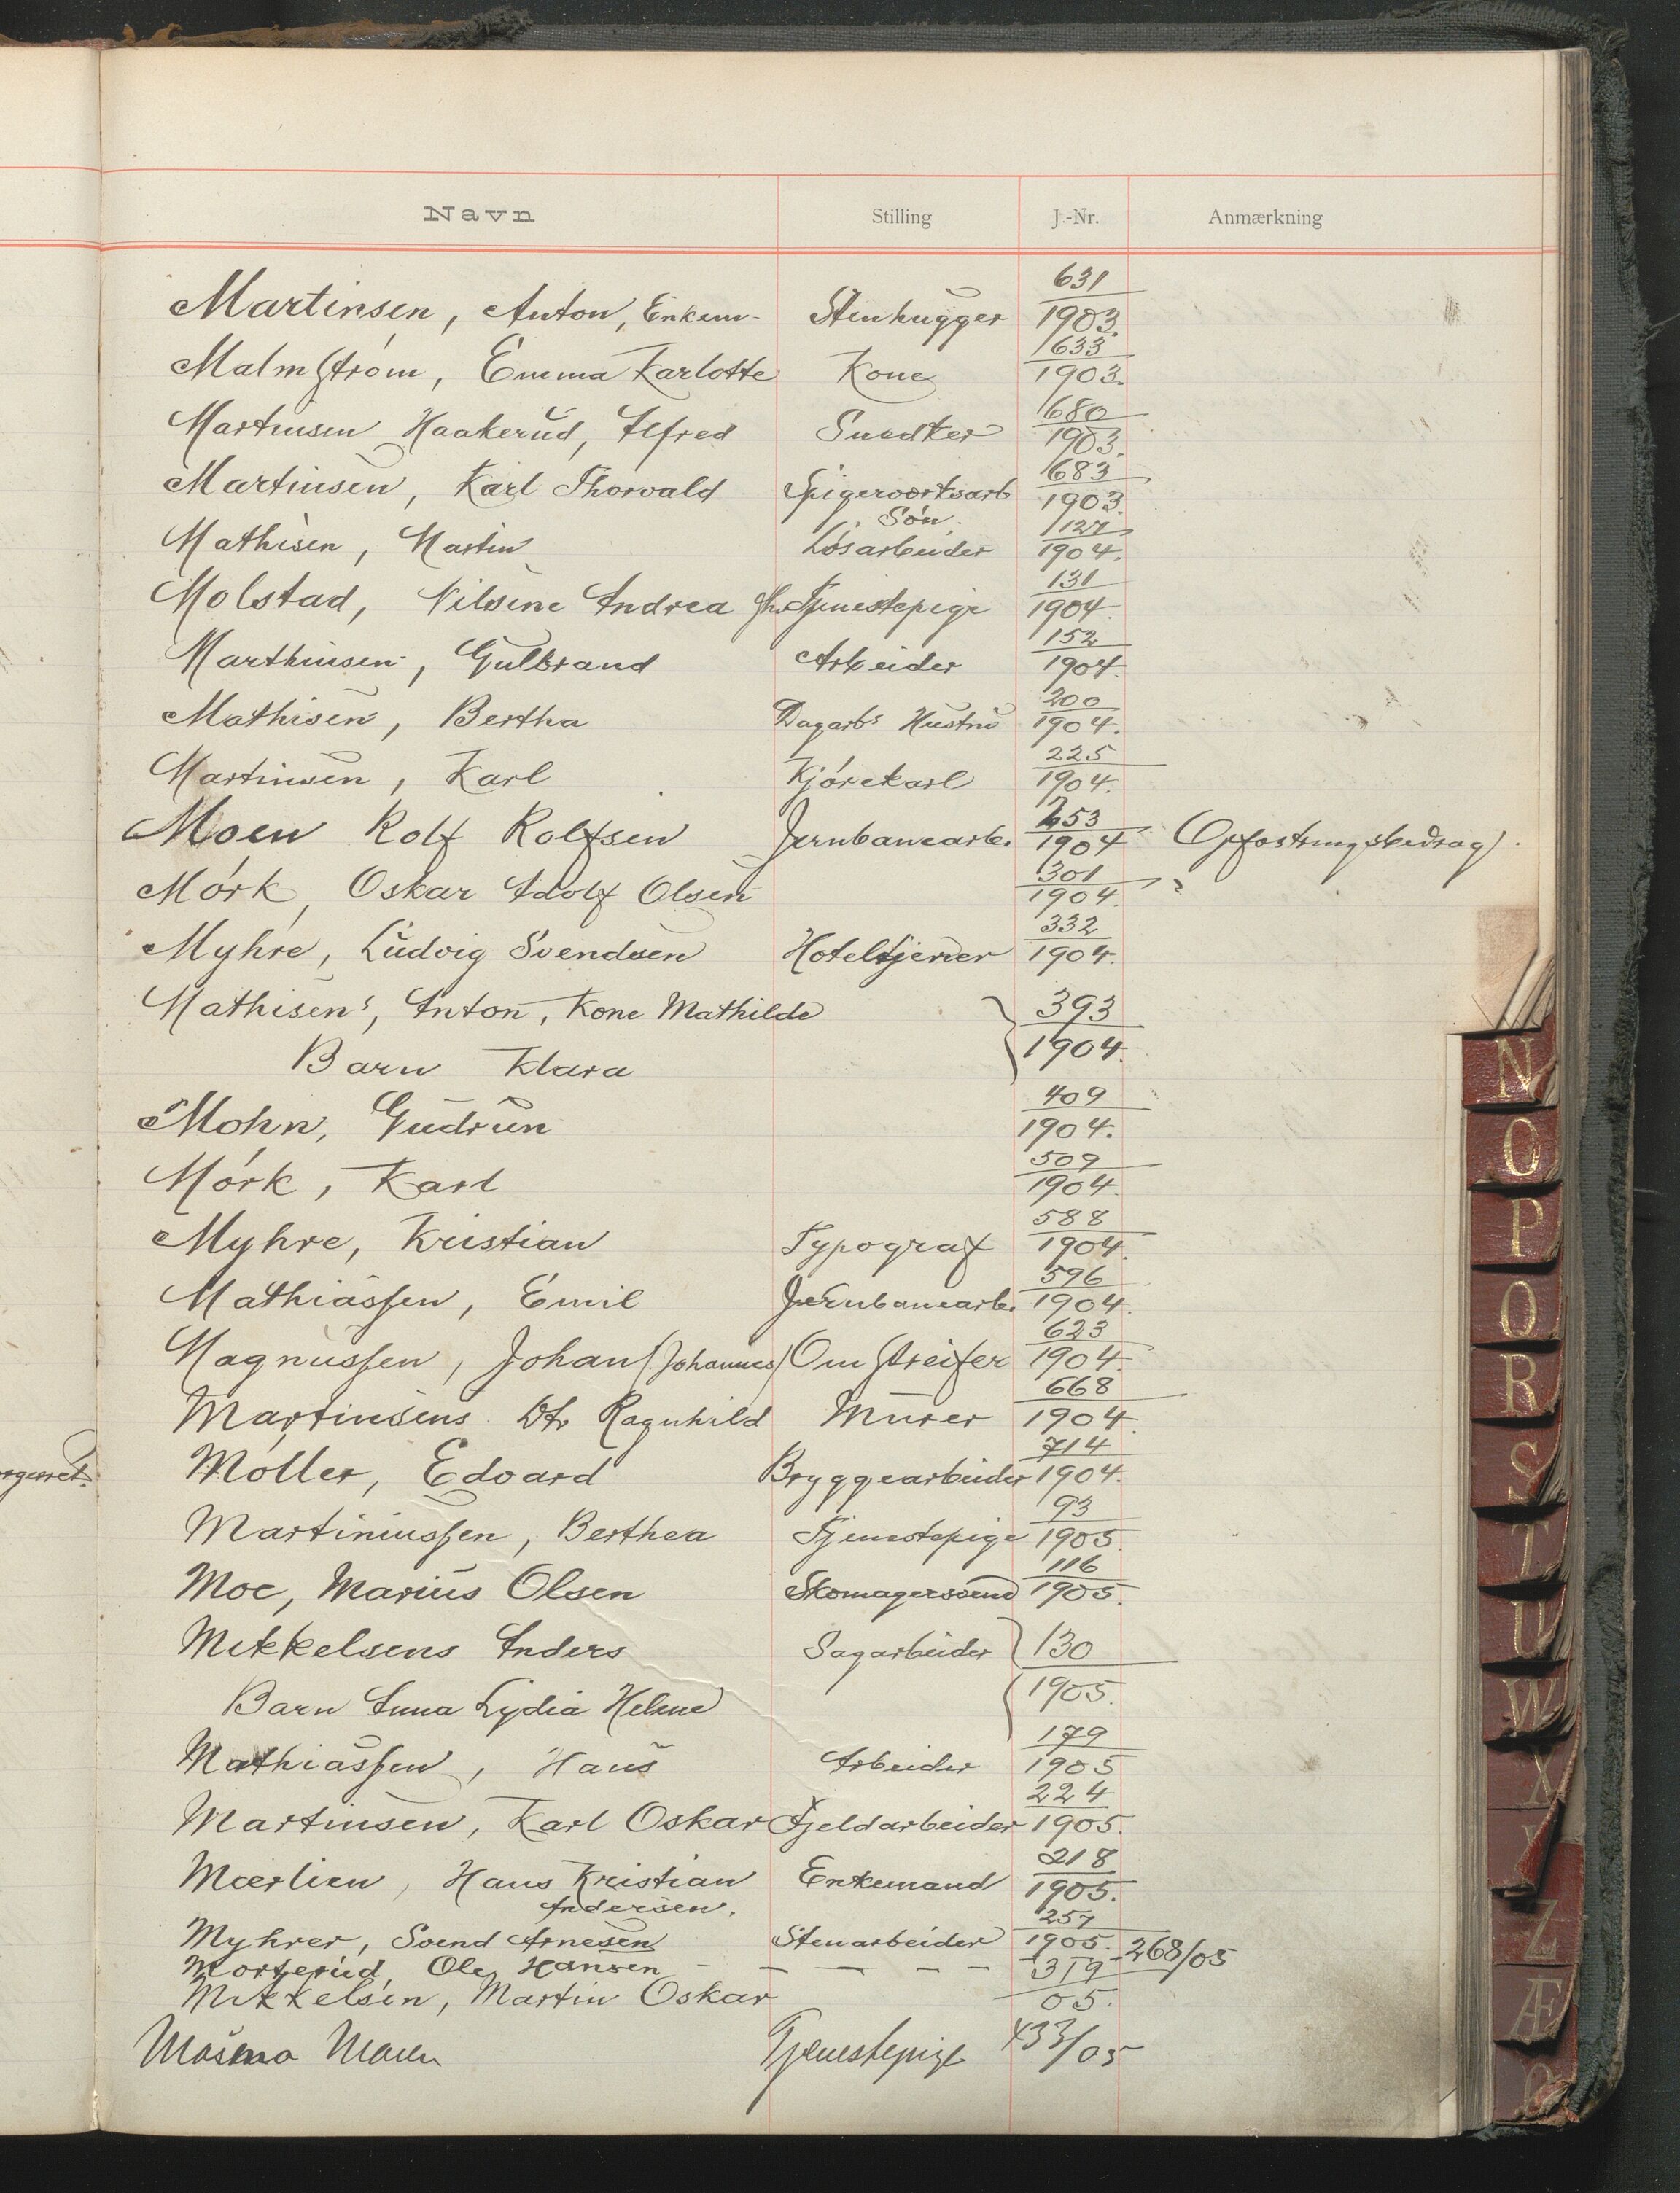 Navn Stilling J.-Nr. Anmærkning
Martinsen, Anton, Enkem- Stenhugger 631/1903.
Malmström, Emma Karlotte Kone 633/1903.
Martinsen Haakerud, Alfred Snedker 680/1903.
Martinsen, Karl Thorvald Spigerværksarb Søn. 683/1903.
Mathisen, Martin Løsarbeider 127/1904.
Molstad, Nilsine Andrea Tjenestepige 131/1904.
Marthinsen, Gulbrand Arbeider 152/1904.
Mathisen, Bertha Dagarbs Hustru 200/1904.
Martinsen, Karl Kjørekarl 225/1904.
Moen Rolf Rolfsen Jernbanearb. 253/1904 (Opfostringsbidrag).
Mørk, Oskar Adolf Olsen 301/1904. ?
Myhre, Ludvig Svendsen Hoteltjener 332/1904.
Mathisens, Anton, Kone Mathilde 393/1904.
Barn Klara
Mohn, Gudrun 409/1904.
Mørk, Karl 509/1904.
Myhre, Kristian Typograf 588/1904.
Mathiassen, Emil Jernbanearb. 596/1904.
Magnussen, Johan (Johannes) Omstreifer 623/1904
Martinsens Dtr Ragnhild Murer 668/1904.
Møller, Edvard Bryggearbeider 714/1904.
orgerret.
Martiniussen, Berthea Tjenestepige 93/1905.
Moe, Marius Olsen Skomagersvend 116/1905.
Mikkelsens Anders Sagarbeider 130/1905.
Barn Anna Lydia Helene
Mathiassen, Hans Arbeider 179/1905
Martinsen, Karl Oskar Fjeldarbeider 224/1905.
Mærlien, Hans Kristian Enkemand 218/1905.
Andersen.
Myhrer, Svend Arnesen Stenarbeider 257/1905.
Morterud, Ole Hansen - - - - - 268/05
Mikkelsen, Martin Oskar 319/05.
Maren Tjenestepige 433/05
N
O
P
Q
R
S
T
U
W
X
Y
Z
Æ
Ø